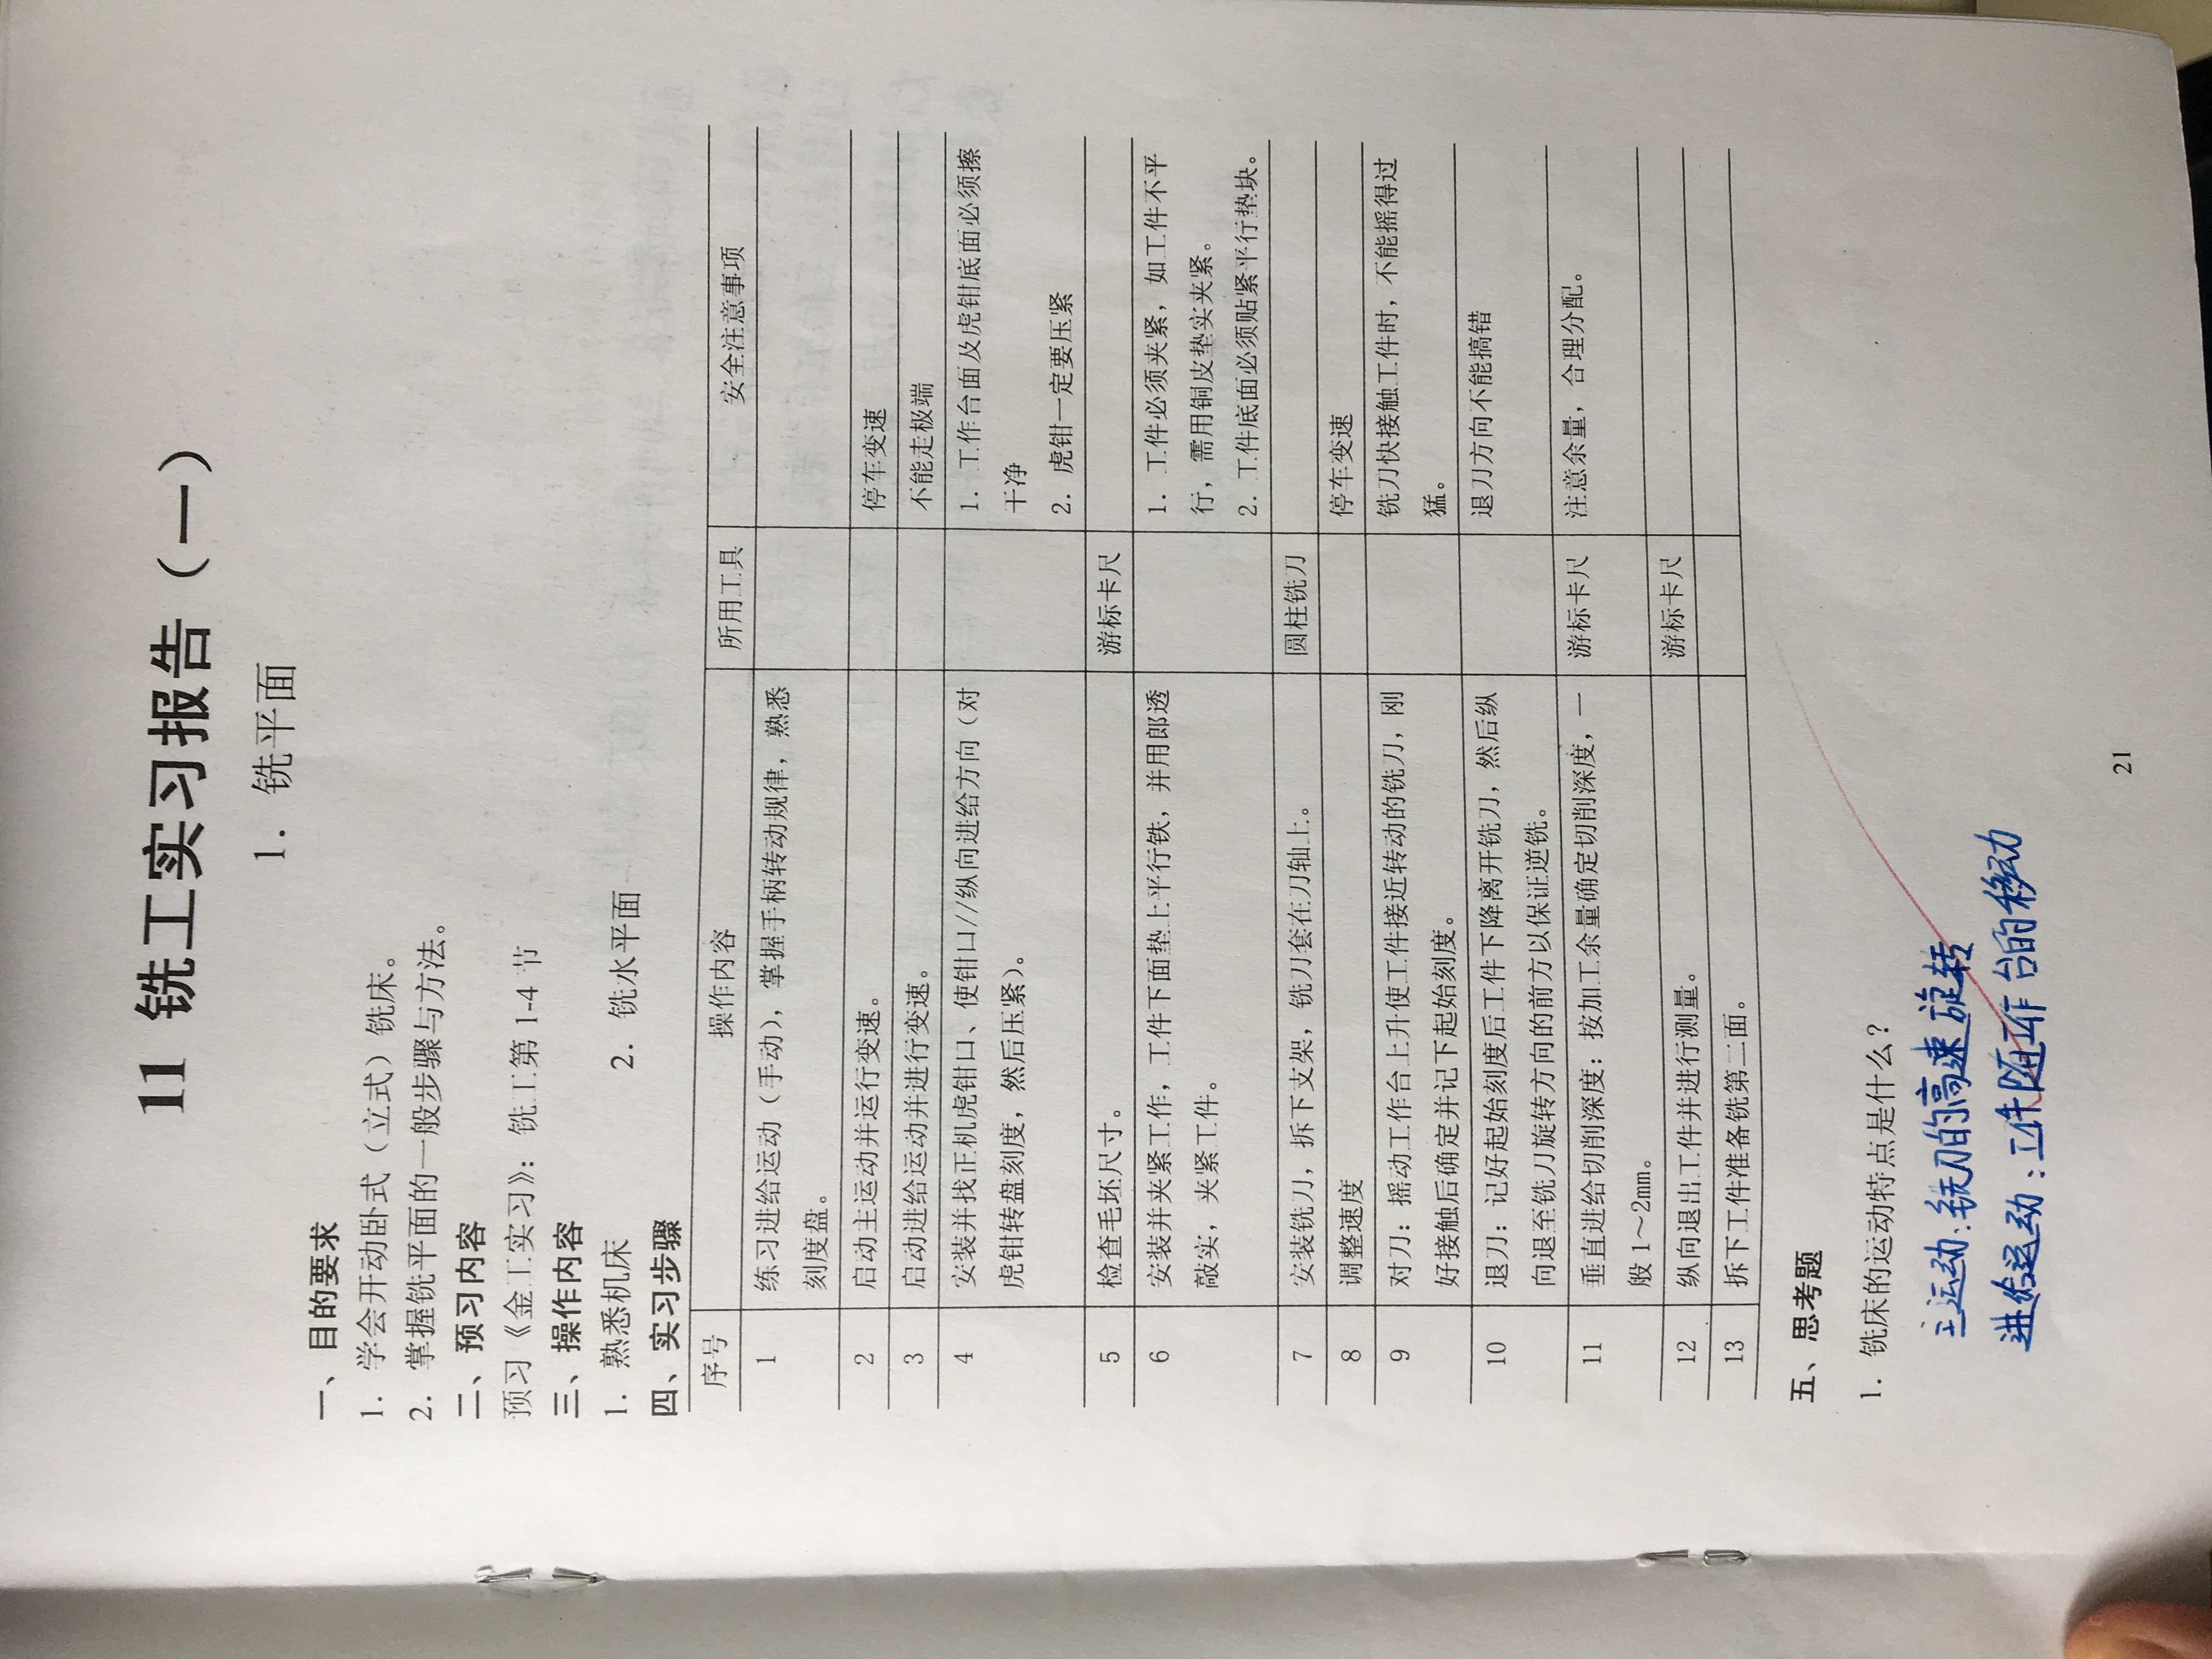 11 铣工实习报告（一）
1．铣平面
一、目的要求
1．学会开动卧式（立式）铣床。
2．掌握铣平面的一般步骤与方法。
二、预习内容
预习《金工实习》：铣工第 1-4 节
三、操作内容
1．熟悉机床 2．铣水平面
四、实习步骤
序号 操作内容 所用工具 安全注意事项
1 练习进给运动（手动），掌握手柄转动规律，熟悉
刻度盘。
2 启动主运动并运行变速。 停车变速
3 启动进给运动并进行变速。 不能走极端
4 安装并找正机虎钳口、使钳口//纵向进给方向（对 1．工作台面及虎钳底面必须擦
虎钳转盘刻度，然后压紧）。 干净
2．虎钳一定要压紧
5 检查毛坯尺寸。 游标卡尺
6 安装并夹紧工作，工件下面垫上平行铁，并用郎透 1．工件必须夹紧，如工件不平
敲实，夹紧工件。 行，需用铜皮垫实夹紧。
2．工件底面必须贴紧平行垫块。
7 安装铣刀，拆下支架，铣刀套在刀轴上。 圆柱铣刀
8 调整速度 停车变速
9 对刀：摇动工作台上升使工件接近转动的铣刀，刚 铣刀快接触工件时，不能摇得过
好接触后确定并记下起始刻度。 猛。
10 退刀：记好起始刻度后工件下降离开铣刀，然后纵 退刀方向不能搞错
向退至铣刀旋转方向的前方以保证逆铣。
11 垂直进给切削深度：按加工余量确定切削深度，一 游标卡尺 注意余量，合理分配。
般 1～2mm。
12 纵向退出工件并进行测量。 游标卡尺
13 拆下工件准备铣第二面。
五、思考题
1．铣床的运动特点是什么？
主运动：铣刀的高速旋转
进给运动：工件随工作台的移动
21